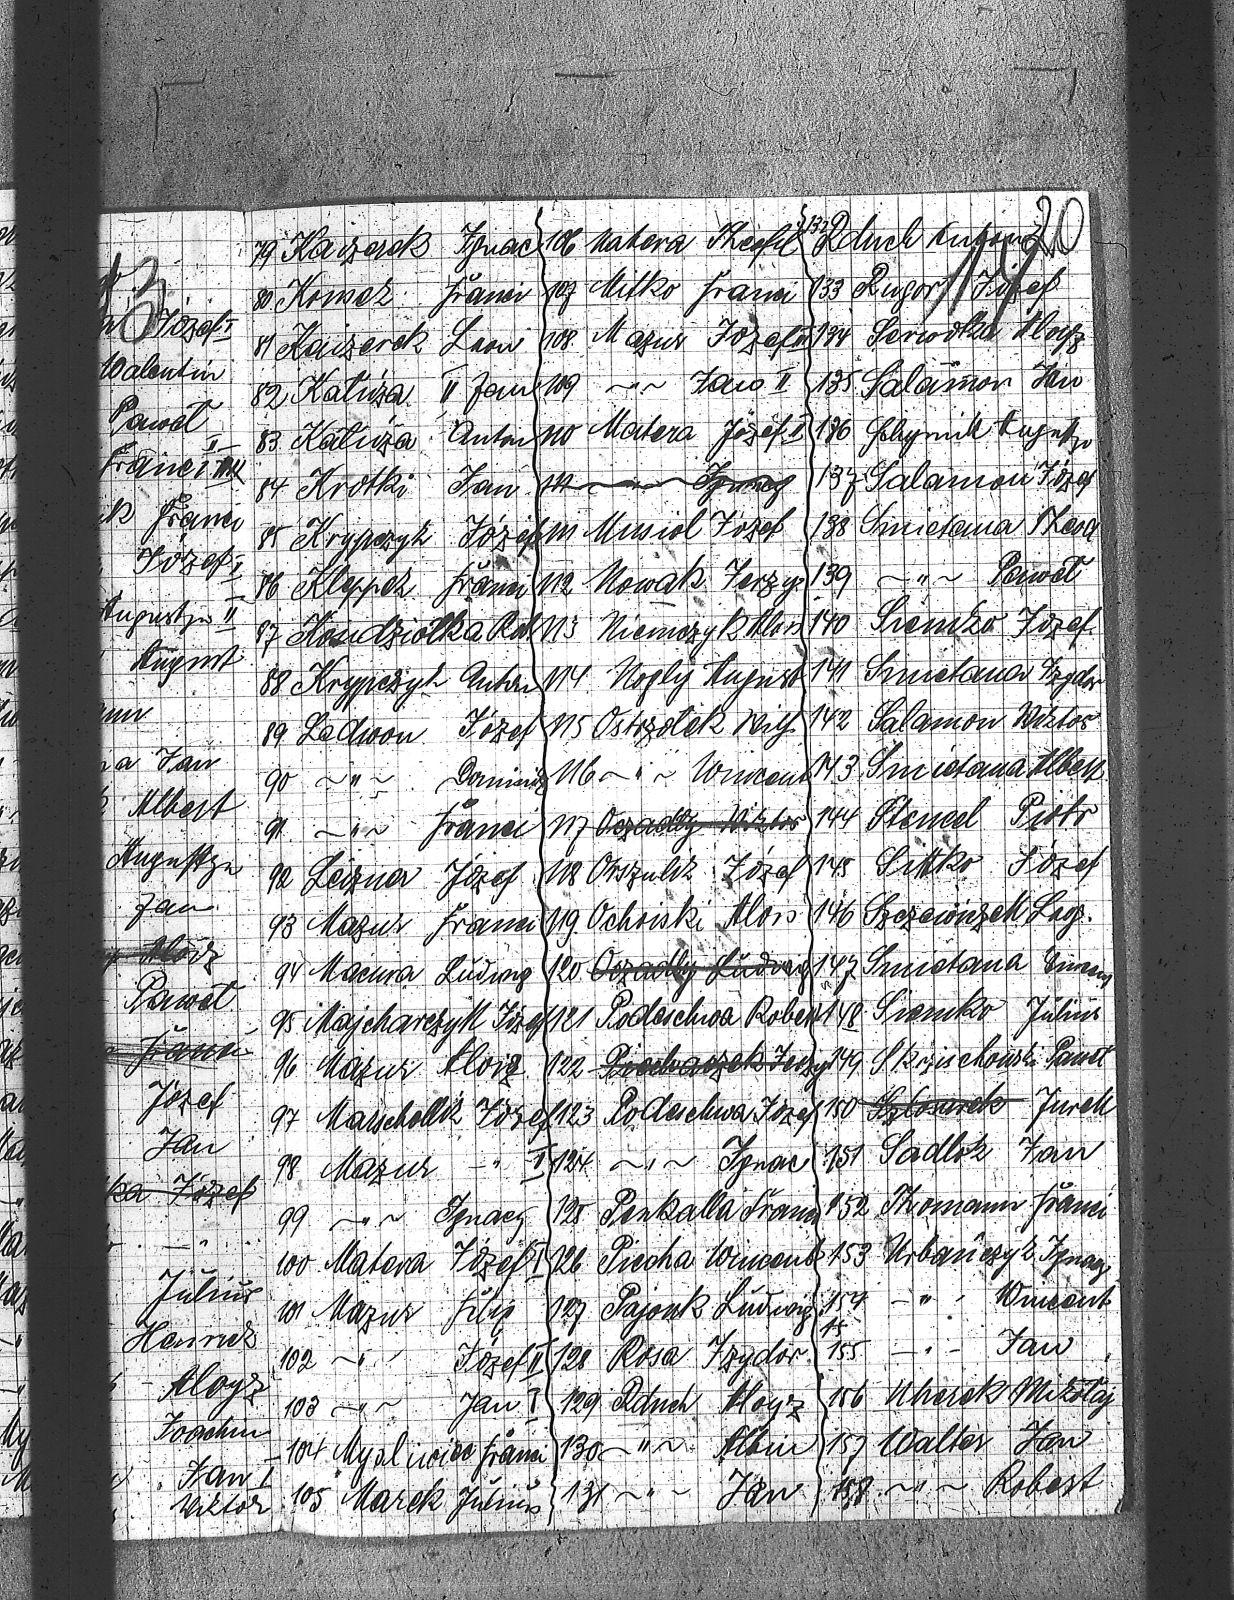 20
13
114
Józef I
Walentin
Paweł
Franci II
Franci
Józef I
Augustyn II
August
Jan
Albert
Augustyn
Jan
Aloiz
Paweł
Franci
Józef
Jan
Józef
Julius
Henrick
Aloyz
Joachim
Jan I
Wiktor
79 Kaczorek Ignac
80 Komor Franci
81 Kaczorek Leon
82 Katuża II Jan
83 Katuża Anton
84 Krotki Jan
85 Krypczyk Józef
86 Kleppek Franci
87 Kondziolka Rob
88 Krypczyk Anton
89 Ledwon Józef
90 ~"~ Dominik
91 ~"~ Franci
92 Leżner Józef
93 Mazur Franci
94 Macura Ludwig
95 Majcharczyk Józef
96 Mazur Aloiz
97 Marschollik Józef
98 Mazur -"- I
99 ~"~ Ignacy
100 Matera Józef I
101 Mazur Filip
102 ~"~ Józef II
103 ~"~ Jan I
104 Mysliwiec Franci
105 Marek Julius
106 Matera Theofil
107 Mitko Franci
108 Mazur Józef
109 ~"~ Jan II
110 Matera Józef I
111 ~"~ Ignacy
111 Musiol Józef
112 Nowak Jerzy
113 Niemczyk Alois
114 Noply August
115 Ostrzolek
116 ~"~ Wincent
117 Oczadly Wiktor
118 Orszulik Józef
119 Ochojski Alois
120 Oczadly Ludwig
121 Podeschwa Robert
122 Piechaczek Jerzy
123 Podeschwa Józef
124 ~"~ Ignac
125 Penkalla Franci
126 Piecha Wincent
127 Pajonk Ludwig
128 Rosa Izydor
129 Rduch Aloyz
130 ~"~ Albin
131 ~"~ Jan
132 Rduch Antoni
133 Rugor Józef
134 Serwotka Aloyz
135 Salamon Jan
136 Augustyn
137 Salamon Józef
138 Smietana
139 ~"~ Paweł
140 Siemko Józef
141 Smietana Izydor
142 Salamon Wiktor
143 Smietana Albert
144 Stencel Piotr
145 Sitko Józef
146
147 Smietana
148 Siemko Julius
149 Paweł
150 Jureck
151 Sadlok Jan
152 Thomann Franci
153 Urbańczyk Ignacy
154 -"- Wincent
155 -"- Jan
156 Uherek Mikołaj
157 Walter Jan
158 ~"~ Robert